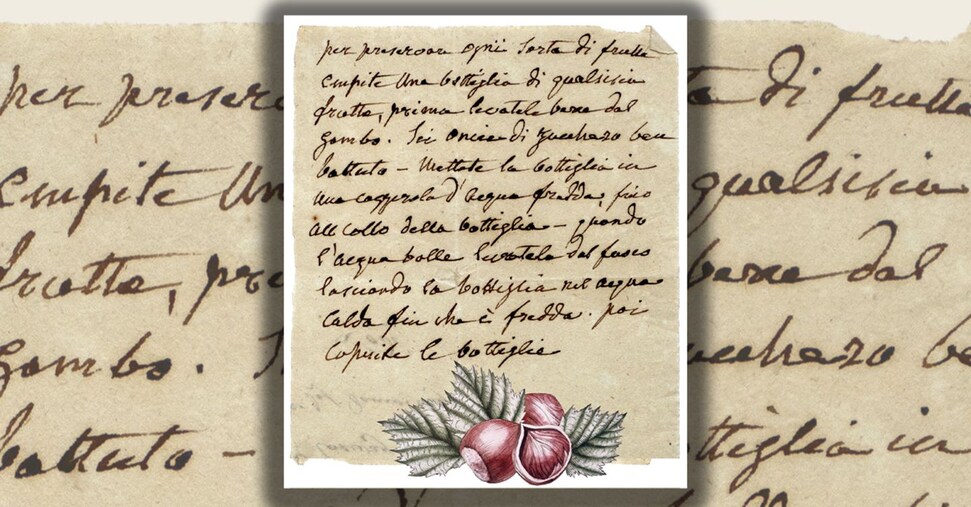 per preservare ogni sorta di frutta
empite una bottiglia di qualsisia
frutta, prima levatele bene dal
gambo. Sei oncie di zuccharo ben
battuto – Mettete la bottiglia in
una casserola d'acqua fredda, fino
all collo della bottiglia – quando
l'acqua bolle levatela dal fuoco
lasciando la bottiglia nel acqua
calda fin che è fredda. poi
coprite le bottiglie